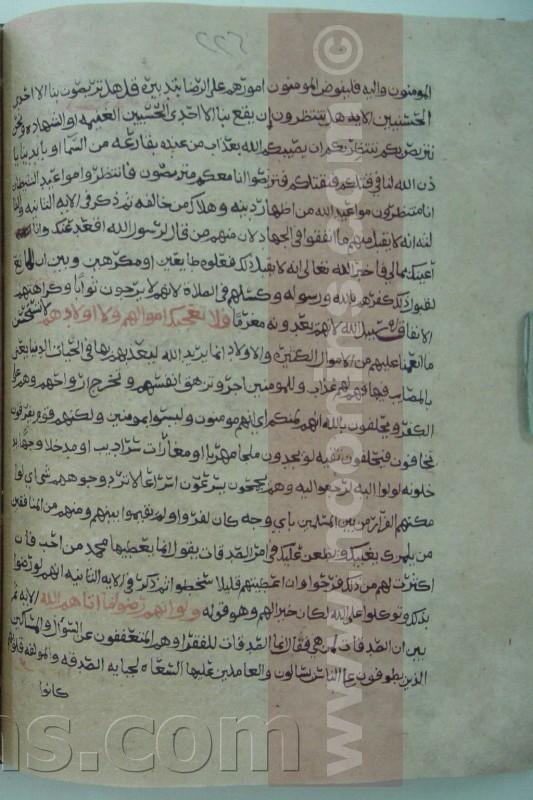 ٢٢٦
المومنون واليه فليفوض المومنون امورهم على الرضا بتدبيره قل هل تربصون بنا الا احدى
الحسنيين الايه هل تنتظرون ان يقع بنا الا احدى الحسنيين الغنيمه او الشهاده ونحن
نتربص بكم ننتظر بكم ان يصيبكم الله بعذاب من عنده بقارعه من السما او بايدينا با
ذن الله لنا في قتلكم فنقتلكم فتربصوا انا معكم متربصون فانتظروا مواعيد الشيطان
انا منتظرون مواعيد الله من اظهار دينه وهلاك من خالفه ثم ذكر في الايه الثانيه والثا
لثه انه لا يقبل منهم ما انفقوا في الجهاد لان منهم من قال لرسول الله اقعد عنك وانا
اعينك بمالي فاخبر الله تعالى انه لا يقبل ذلك فعلوه طايعين او مكرهين وبين ان المانع
لقبول ذلك كفرهم بالله ورسوله وكسلهم في الصلاة لانهم لا يرجون ثوابا وكراهتهم
الانفاق في سبيل الله لانهم يعدونه مغرما ولا تعجبك اموالهم ولا اولادهم لا تستحسن
ما انعمنا عليهم من الاموال الكثيره والاولاد انما يريد الله ليعذبهم بها في الحيات الدنيا يعني
بالمصايب فيها فهي لهم عذاب وللمومنين اجر وتزهق انفسهم وتخرج ارواحهم وهم على
الكفر ويحلفون بالله انهم لمنكم اي انهم مومنون وليسوا بمومنين ولكنهم قوم يفرقون
يخافون فيحلفون تقيه لو يجدون ملجا مهربا او مغارات سراديب او مدخلا وجها يد
خلونه لولوا اليه لرجعوا اليه وهم يجمحون يسرعون اسراعا لا ترد وجوههم شي اي لو ا
مكنهم الفرار من بين المسلمين باي وجه كان لفروا ولم يقيموا بينهم ومنهم من المنافقين
من يلمزك يعيبك ويطعن عليك في امر الصدقات يقول انما يعطيها محمد من احب فان
اكثرت لهم من ذلك فرحوا وان اعطيتهم قليلا سخطوا ثم ذكر في الايه الثانيه انهم لو رضوا
بذلك وتوكلوا على الله لكان خيرا لهم وهو قوله ولو انهم رضوا ما اتاهم الله الايه ثم
بين ان الصدقات لمن هي فقال انما الصدقات للفقرا وهم المتعففون عن السوال والمساكين
الذين يطوفون على الناس يسالون والعاملين عليها السعاه لجبايه الصدقه والمولفه قلوبهم
كانوا